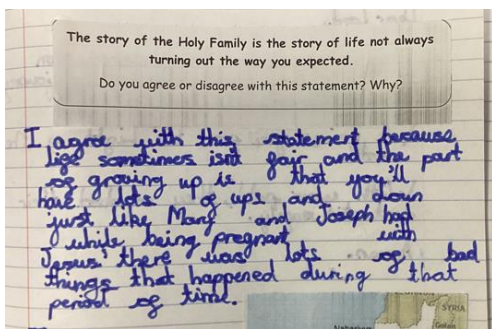 The story of the Holy Family is the story of life not always
turning out the way you expected.
Do you agree or disagree with this statement? Why?
I agree with this statement because
life sometimes isnt fair and the part
of growing up is that you'll
have lots of ups and down
just like Mary and Joseph had
while being pregnant with
Jesus there was lots of bad
things that happened during that
period of time.
SYRIA
Golan